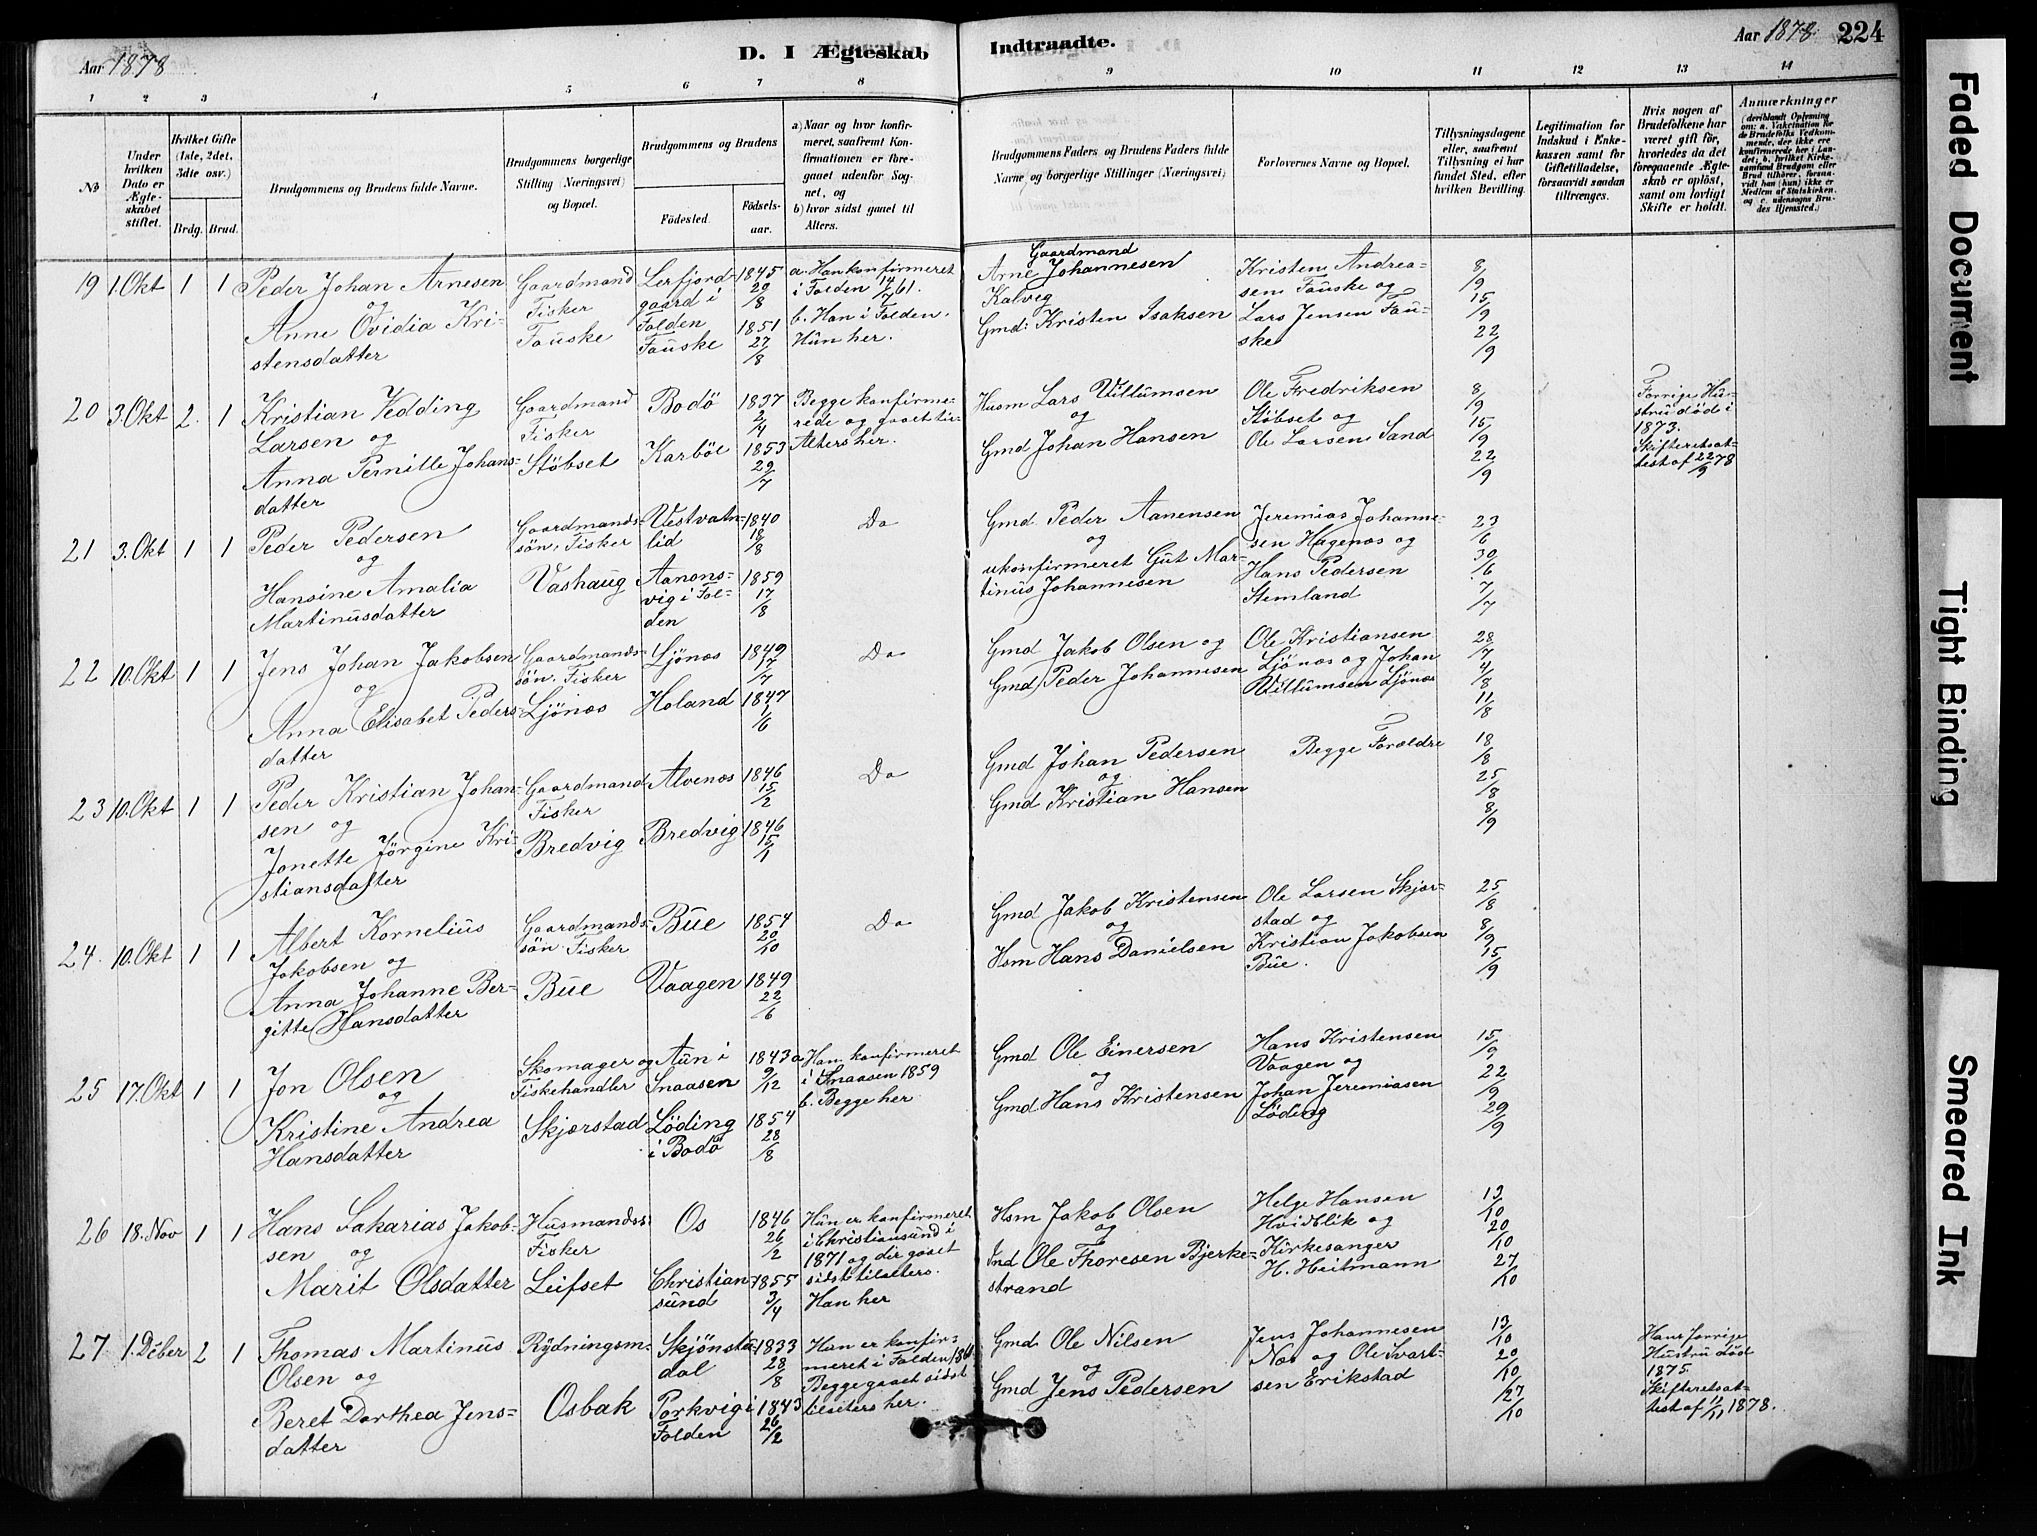 Aar 1878.
D. I Ægteskab
Indtraadte.
Aar 1878.
224
1 2 3 4 5 6 7 8 9 10 11 12 13 14
No
Under hvilken Dato er Ægteskabet stiftet.
Hvilket Gifte (1ste, 2det, 3die osv.)
Brdg. Brud.
Brudgommens og Brudens fulde Navne.
Brudgommens borgerlige Stilling (Næringsvei) og Bopæl.
Brudgommens og Brudens
Fødested.
Fødselsaar.
a) Naar og hvor konfirmeret, saafremt Konfirmationen er foregaaet udenfor Sognet, og
b) hvor sidst gaaet til Alters.
Brudgommens Faders og Brudens Faders fulde Navne og borgerlige Stillinger (Næringsvei)
Forlovernes Navne og Bopæl.
Tillysningsdagene eller, saafremt Tillysning ei har fundet Sted, efter hvilken Bevilling.
Legitimation for Indskud i Enkekassen samt for Giftetilladelse, forsaavidt saadan tiltrænges.
Hvis nogen af Brudefolkene har været gift før, hvorledes da det foregaaende Ægteskab er opløst, samt om lovligt Skifte er holdt.
Anmærkninger
(deriblandt Oplysning om: a. Vakcination for de Brudefolks Vedkommende, der ikke ere konfirmerede her i Landet; b. hvilket Kirkesamfund Brudgom eller Brud tilhører, forsaavidt han (hun) ikke er Medlem af Statskirken og c. udensogns Brudes Hjemsted.)
19 1. Okt 1 1
Peder Johan Arnesen
og
Anne Ovidia Kri-
stensdatter
Gaardmand
Fisker
Fauske
Lerfjord-
gaard i
Folden
Fauske
1845
29/8
1851
27/8
a. Han konfirmeret
i Folden 14/7 61.
b. Han i Folden.
Hun her.
Gaardmand
Arne Johannesen
Kalvig
Gmd: Kristen Isaksen
Kristen Andrea-
sen Fauske og
Lars Jensen Fau-
ske
8/9
15/9
22/9
20 3. Okt 2. 1
Kristian Vedding
Larsen og
Anna Pernille Johans-
datter
Gaardmand
Fisker
Støbset
Bodö
Karböl
1837
2/4
1853
29/7
Begge konfirme-
rede og gaaet til
Alters her.
Husm Lars Villumsen
og
Gmd Johan Hansen
Ole Fredriksen
Støbset og
Ole Larsen Sand
8/9
15/9
22/9
Forrige Hu-
stru död i
1873.
Skifteretsat-
test af 22/9 78
21 3. Okt 1 1
Peder Pedersen
og
Hansine Amalia
Martinusdatter
Gaardmands-
sön. Fisker
Vashaug
Vestvatn-
lid
Aanons-
vig i Fol-
den
1840
18/8
1859
17/8
Do
Gmd Peder Aanensen
og
ukonfirmeret Gut Mar-
tinus Johannesen
Jeremias Johanne-
sen Hagenæs og
Hans Pedersen
Stemland
23/6
30/6
7/7
22 10. Okt 1 1
Jens Johan Jakobsen
og
Anna Elisabet Peders-
datter
Gaardmands-
sön. Fisker
Ljönæs
Ljönæs
Holand
1849
17/7
1847
1/6
Do
Gmd Jakob Olsen og
Gmd Peder Johannesen
Ole Kristiansen
Ljönæs og Johan
Villumsen Ljönæs
28/7
4/8
11/8
23 10. Okt 1 1
Peder Kristian Johan-
sen og
Jonette Jörgine Kri-
stiansdatter
Gaardmand
Fisker
Bredvig
Alvenæs
Bredvig
1846
15/2
1846
15/1
Do
Gmd Johan Pedersen
og
Gmd Kristian Hansen
Begge Forældre
18/8
25/8
8/9
24. 10. Okt 1 1
Albert Kornelius
Jakobsen og
Anna Johanne Ber-
gitte Hansdatter
Gaardmands-
sön. Fisker
Bue
Bue
Vaagen
1854
20/10
1849
22/6
Do
Gmd Jakob Kristensen
og
Hsm Hans Danielsen
Ole Larsen Skjær-
stad og
Kristian Jakobsen
Bue.
25/8
8/9
15/9
25 17. Okt 1 1
Jon Olsen
og
Kristine Andrea
Hansdatter
Skomager og
Fiskehandler
Skjærstad
Aun i
Snaasen
Löding
i Bodö
1843
9/12
1854
28/8
a. Han konfirmeret
i Snaasen 1859
b. Begge her
Gmd Ole Einersen
og
Gmd Hans Kristensen
Hans Kristensen
Vaagen og
Johan Jeremiasen
Löding
15/9
22/9
29/9
26 18. Nov 1 1
Hans Sakarias Jakob-
sen og
Marit Olsdatter
Husmandss.
Fisker
Leifset
Os
Christian-
sund
1846
26/2
1855
3/4
Hun er konfirmeret
i Christiansund i
1871 og der gaaet
sidst til alters.
Han her
Hsm Jakob Olsen
og
Ind Ole Thoresen Bjerke-
strand
Helge Hansen
Hvidblik og
Kirkesanger
H. Heitmann
13/10
20/10
27/10
27 1. Dêber 2 1
Thomas Martinus
Olsen og
Beret Dorthea Jens-
datter
Rydningsm.
Osbak
Skjönsta-
dal
Porkvig i
Folden
1833
28/8
1843
26/2
Han er konfir-
meret i Folden
Begge gaaet sidst
til alters her.
Gmd Ole Nilsen
og
Gmd Jens Pedersen
Jens Johannesen
Næs og Ole Svart-
sen Erikstad
13/10
20/10
27/10
Hans forrige
Hustru död
1875
Skifteretsat-
test af 1/11 1878.
Faded Document
Tight Binding
Smeared Ink